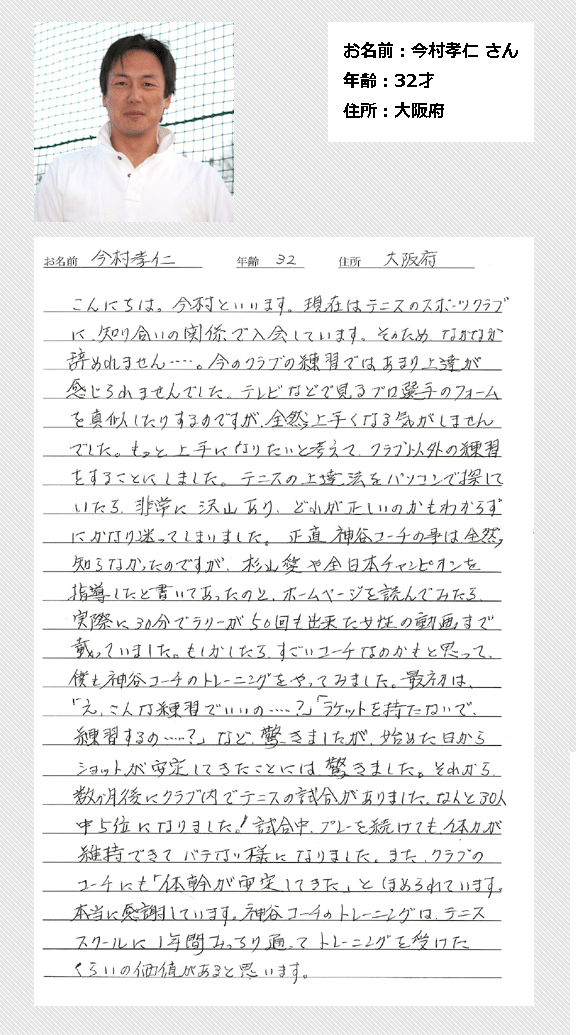 お名前：今村孝仁 さん
年齢：32才
住所：大阪府
お名前 今村孝仁 年齢 32 住所 大阪府
こんにちは。今村といいます。現在はテニスのスポーツクラブ
に、知り合いの関係で入会しています。そのため、なかなか
辞めれません‥‥。今のクラブの練習ではあまり上達が
感じられませんでした。テレビなどで見るプロ選手のフォーム
を真似したりするのですが、全然、上手くなる気がしません
でした。もっと上手になりたいと考えて、クラブ以外の練習
をすることにしました。テニスの上達法をパソコンで探して
いたら、非常に沢山あり、どれが正しいのかもわからず
にかなり迷ってしまいました。正直、神谷コーチの事は全然、
知らなかったのですが、杉山愛や全日本チャンピオンを
指導したと書いてあったのと、ホームページを読んでみたら、
実際に30分でラリーが50回も出来た女性の動画まで
載っていました。もしかしたら、すごいコーチなのかもと思って、
僕も神谷コーチのトレーニングをやってみました。最初は、
「え、こんな練習でいいの‥‥？」「ラケットを持たないで、
練習するの‥‥？」など、驚きましたが、始めた日から
ショットが安定してきたことには驚きました。それから、
数か月後にクラブ内でテニスの試合がありました。なんと30人
中5位になりました！試合中、プレーを続けても、体力が
維持できてバテない様になりました。また、クラブの
コーチにも「体幹が安定してきた」とほめられています。
本当に感謝しています。神谷コーチのトレーニングは、テニス
スクールに1年間みっちり通ってトレーニングを受けた
くらいの価値があると思います。